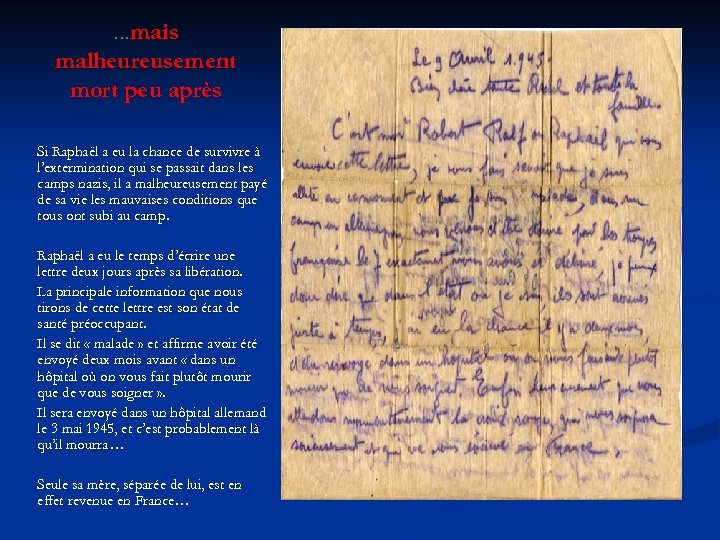 ...mais
malheureusement
mort peu après
Si Raphaël a eu la chance de survivre à
l'extermination qui se passait dans les
camps nazis, il a malheureusement payé
de sa vie les mauvaises conditions que
tous ont subi au camp.
Raphaël a eu le temps d'écrire une
lettre deux jours après sa libération.
La principale information que nous
tirons de cette lettre est son état de
santé préoccupant.
Il se dit « malade » et affirme avoir été
envoyé deux mois avant « dans un
hôpital où on vous fait plutôt mourir
que de vous soigner ».
Il sera envoyé dans un hôpital allemand
le 3 mai 1945, et c'est probablement là
qu'il mourra…
Seule sa mère, séparée de lui, est en
effet revenue en France…
Le 9 Avril 1945.
Bien chère tante et toute la
famille.
C'est moi Robert Ralf ou Raphaël qui vous
envoie cette lettre, je vous fais savoir que je suis
et que je suis malade, dans un
camp en allemagne, nous venons d'être par les troupes
françaises le 7 exactement nous avons été délivré je peux
donc dire que dans l'état où je suis, ils sont arrivés
juste à temps, j'ai eu la chance il y a deux mois
d'être envoyé dans un hôpital où on vous faisait plutôt
mourir que de vous soigner. Enfin heureusement que nous
attendons maintenant la
et qui va nous en France